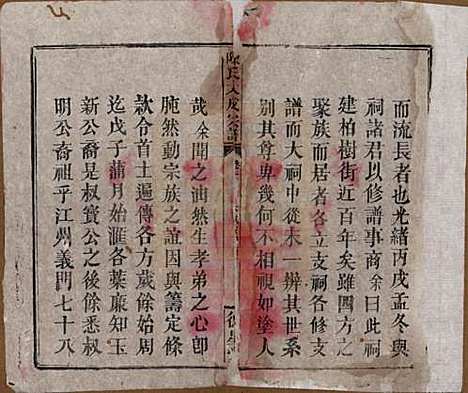 而流長者也光緒丙戌孟冬與
祠諸君以修譜事商余曰此祠
建柏樹街近百年矣雖四方
聚族而居者各立支祠各修支
譜而大祠中從未一辦其世系
別其尊卑幾何不相視如塗人
陳氏大成宗譜
哉余聞之油然生孝弟之心卽
肫然動宗族之誼因與籌定條
款令首士遍傳各方歲餘始周
迄戊子蒲月始滙各藁廉知玉
新公裔晃叔賓公之後餘悉叔
明公裔祖乎江州義門七十八